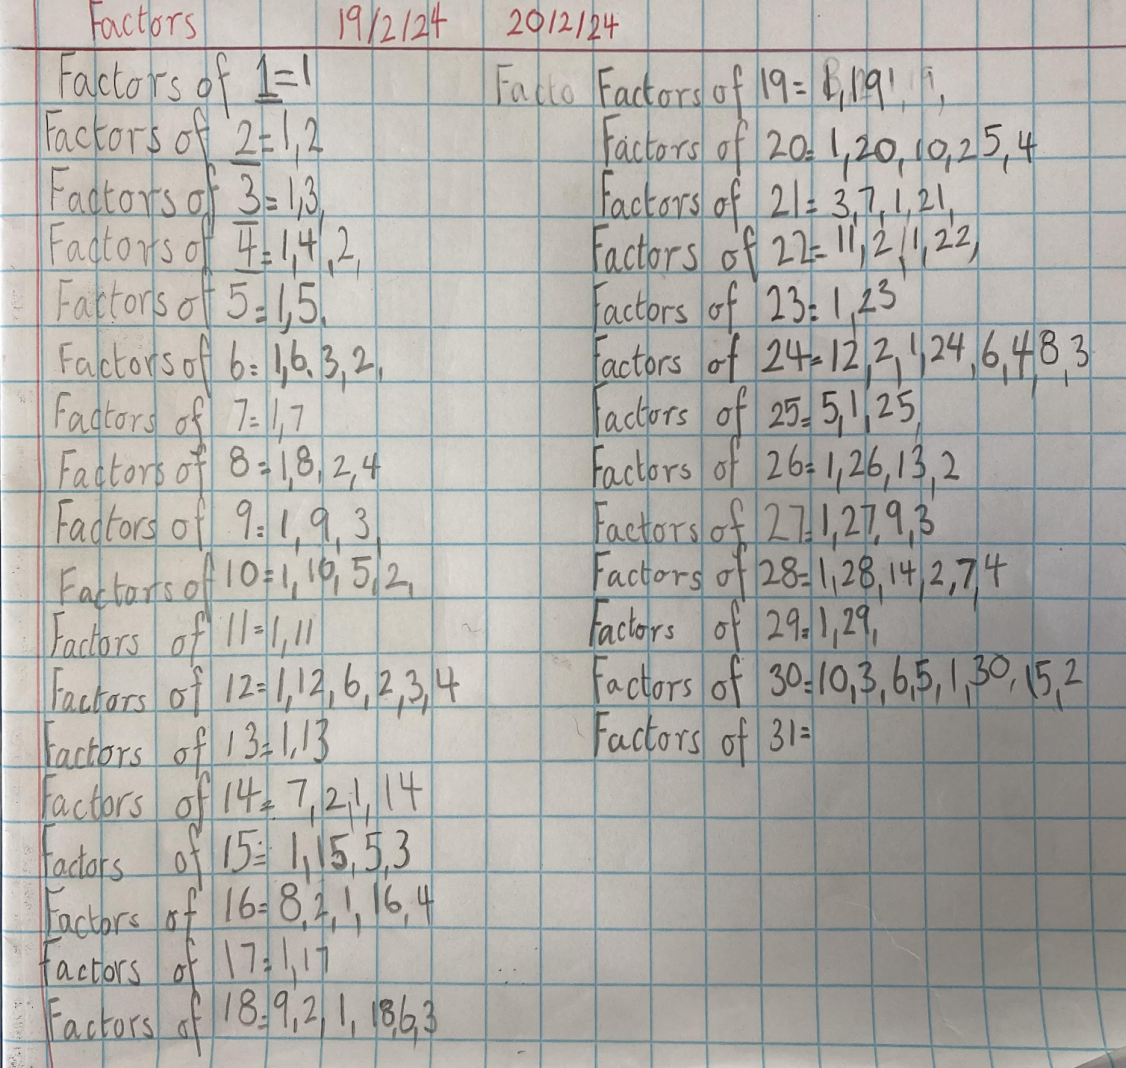 Factors 19/2/24 20/2/24
Factors of 1=1
Factors of 2=1,2
Factors of 3=1,3,
Factors of 4=1,4,2,
Factors of 5=1,5,
Factors of 6=1,6,3,2,
Factors of 7=1,7
Factors of 8=1,8,2,4
Factors of 9=1,9,3,
Factors of 10=1,10,5,2,
Factors of 11=1,11
Factors of 12=1,12,6,2,3,4
Factors of 13=1,13
Factors of 14=7,2,1,14
Factors of 15=1,15,5,3
Factors of 16=8,2,1,16,4
Factors of 17=1,17
Factors of 18=9,2,1,18,6,3
Facto Factors of 19=1,19
Factors of 20=1,20,10,2,5,4
Factors of 21=3,7,1,21,
Factors of 22=11,2,1,22,
Factors of 23=1,23
Factors of 24=12,2,1,24,6,4,8,3
Factors of 25=5,1,25,
Factors of 26=1,26,13,2
Factors of 27=1,27,9,3
Factors of 28=1,28,14,2,7,4
Factors of 29=1,29,
Factors of 30=10,3,6,5,1,30,15,2
Factors of 31=